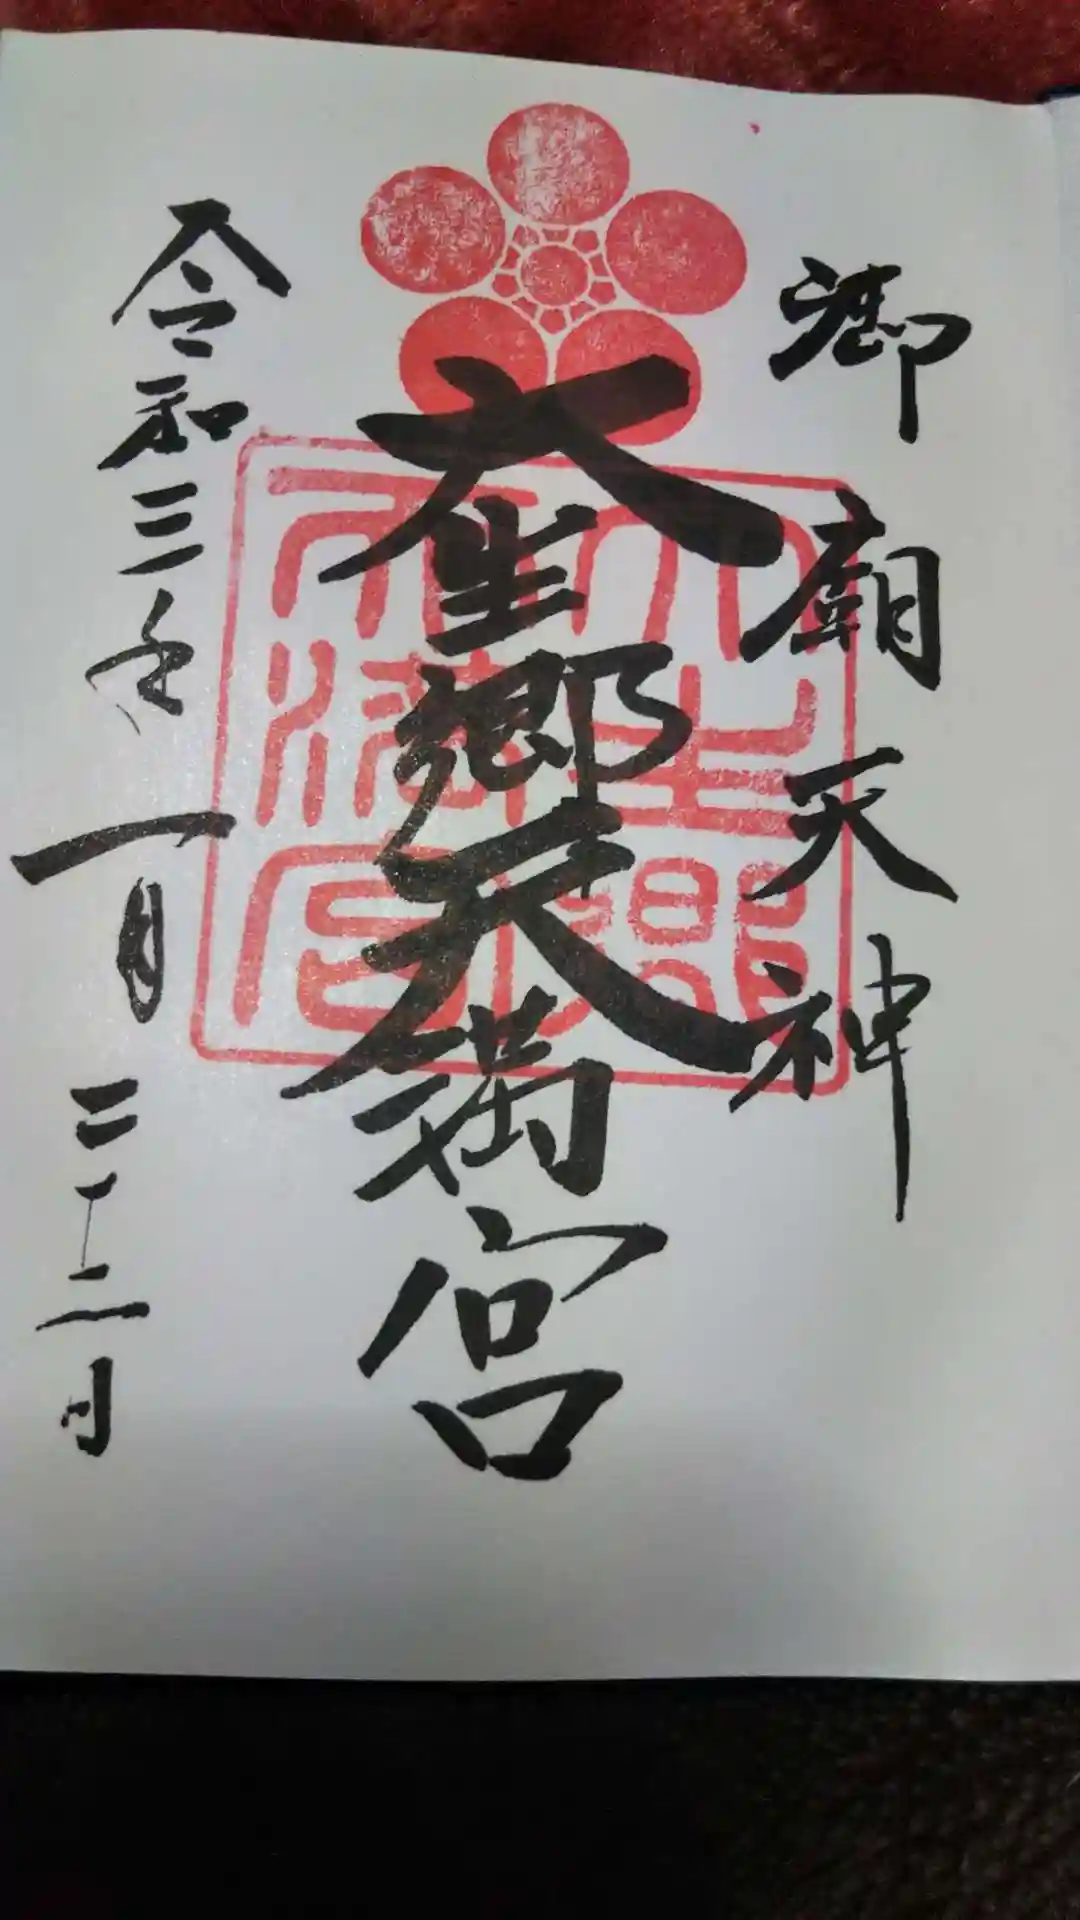 御廟天神
大生郷天満宮
令和三年一月二十二日
大生郷
天満宮